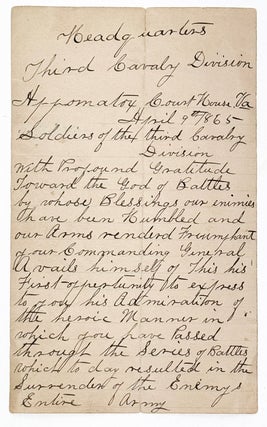 Headquarters
Third Cavaly Division
Appomatox Court House Va
April 9th 1865
Soldiers of the third Cavalry
Division
With Profound Gratitude
Toward the God of Battles
by whose Blessings our enimies
have been Humbled and
our Arms renderd Triumphant
your Commanding General
Avails himself of This his
First opertunity to express
to you his Admiration of
the heroic Manner in
which you have Passed
through the Series of Battles
which to day resulted in the
Surrender of the Enemys
Entire Army